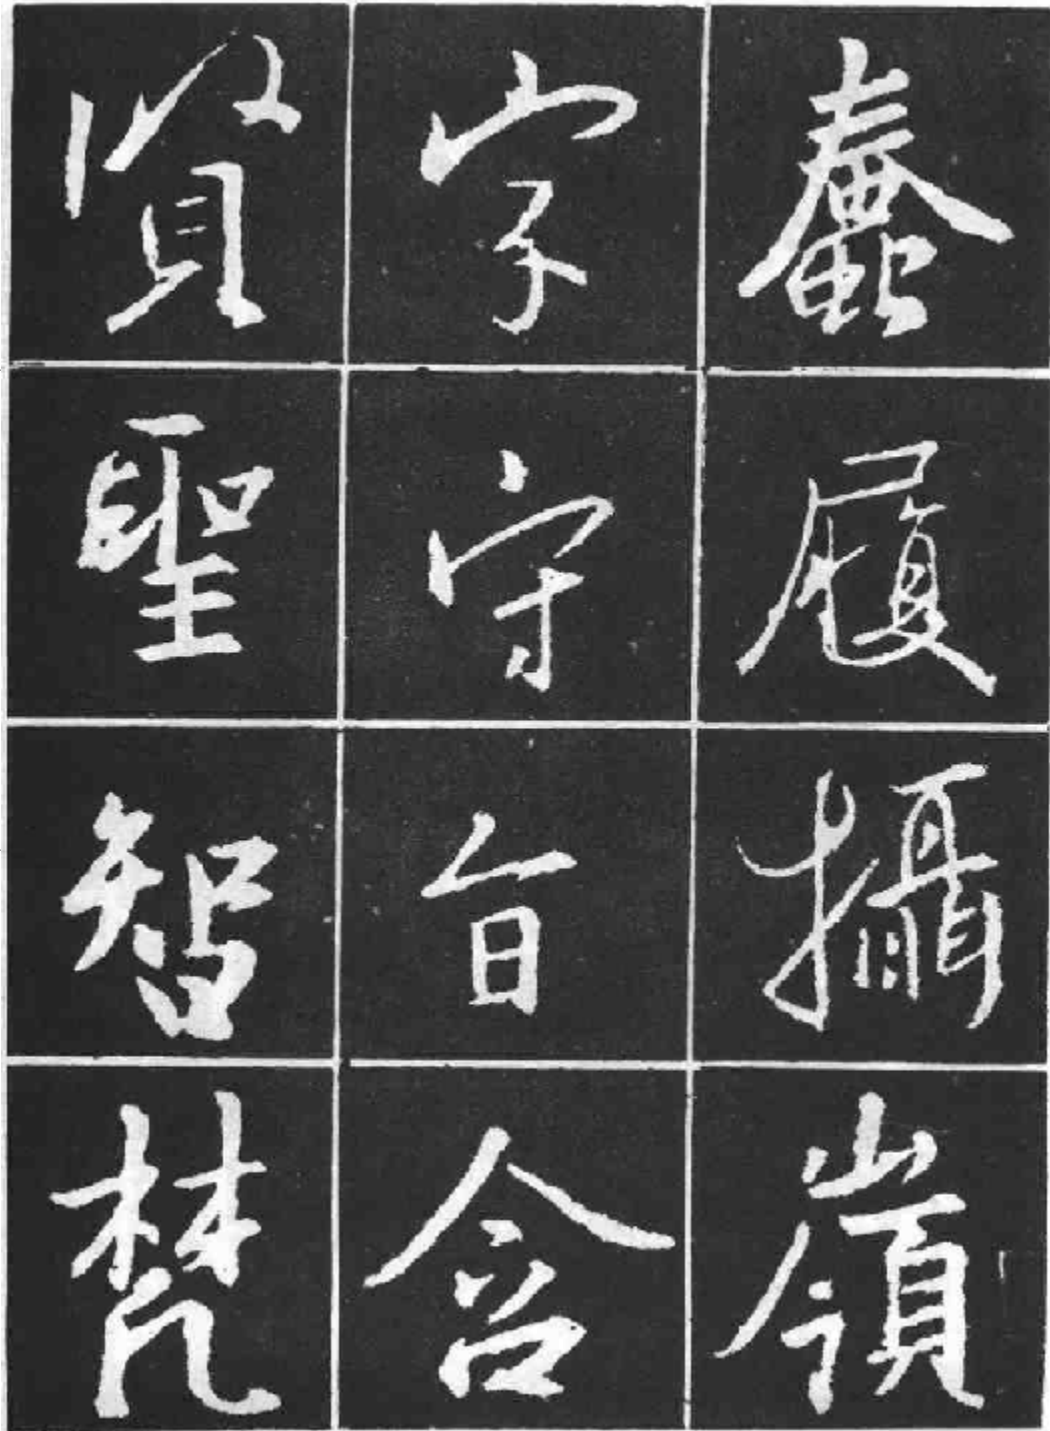 蠢履攝嶺
字守旨含
賢聖智梵